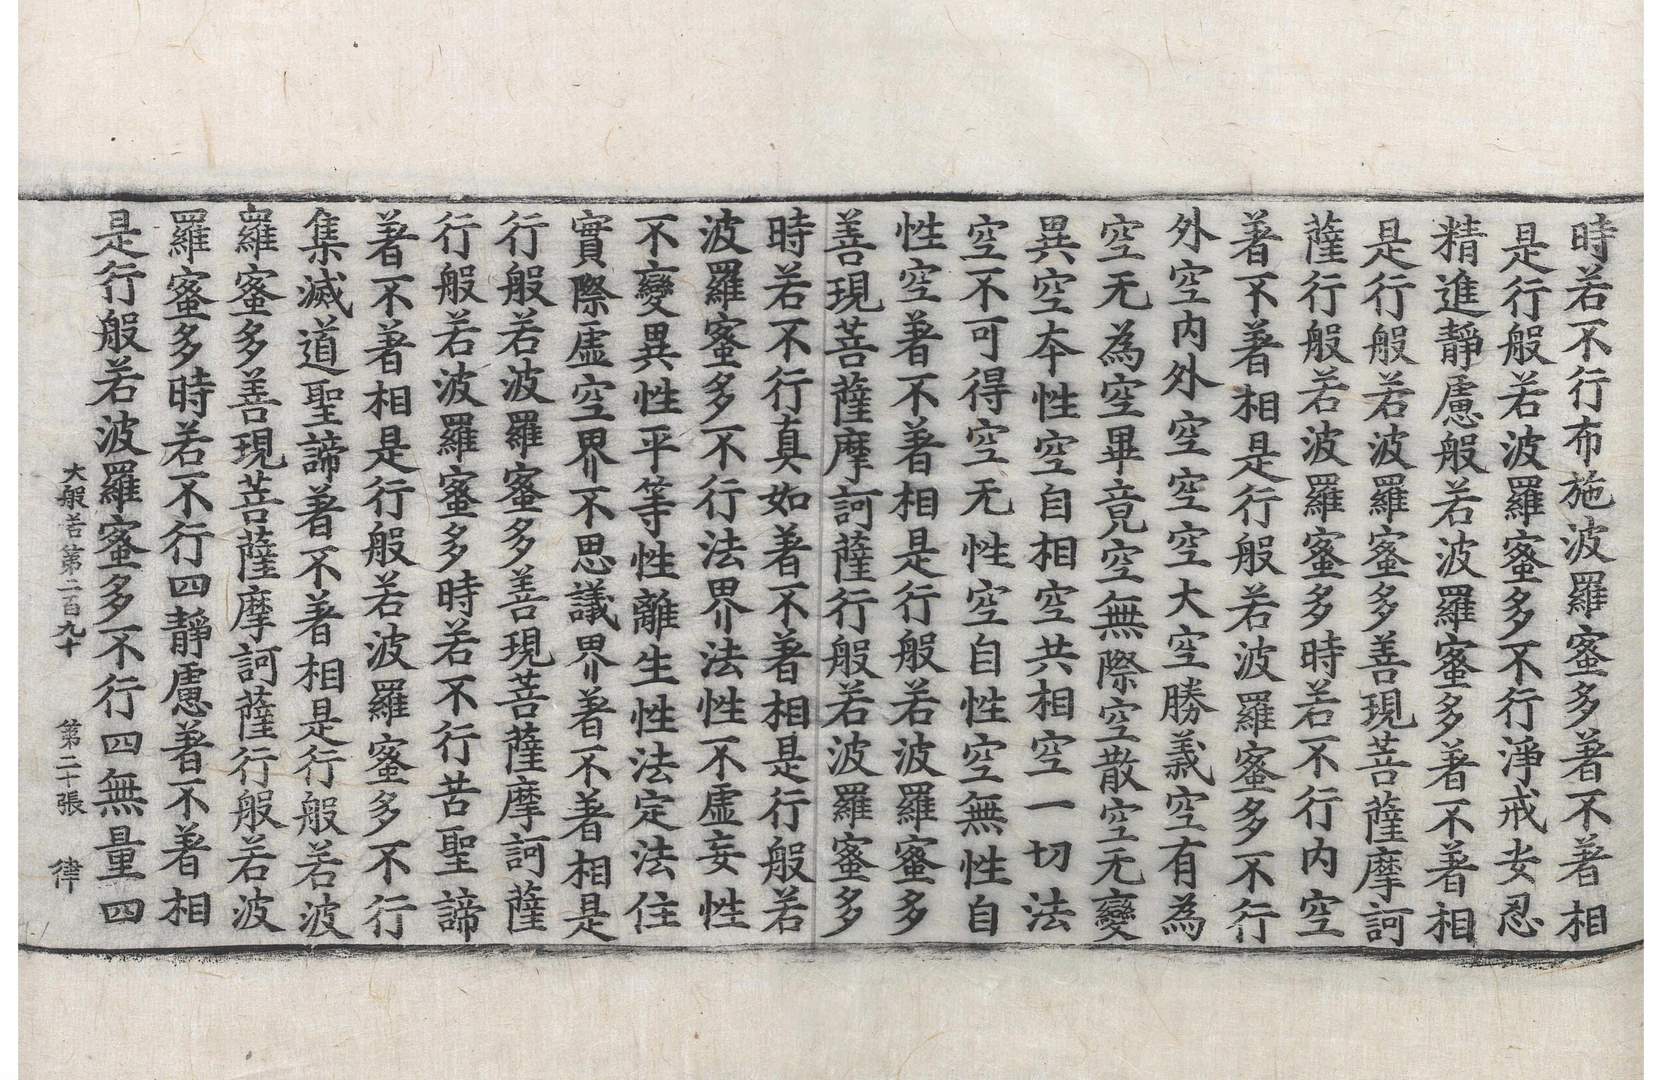 時若不行布施波羅蜜多著不著相
是行般若波羅蜜多不行淨戒安忍
精進靜慮般若波羅蜜多著不著相
是行般若波羅蜜多善現菩薩摩訶
薩行般若波羅蜜多時若不行內空
著不著相是行般若波羅蜜多不行
外空內外空空空大空勝義空有為
空无為空畢竟空無際空散空无變
異空本性空自相空共相空一切法
空不可得空无性空自性空無性自
性空著不著相是行般若波羅蜜多
善現菩薩摩訶薩行般若波羅蜜多
時若不行真如著不著相是行般若
波羅蜜多不行法界法性不虛妄性
不變異性平等性離生性法定法住
實際虛空界不思議界著不著相是
行般若波羅蜜多善現菩薩摩訶薩
行般若波羅蜜多時若不行苦聖諦
著不著相是行般若波羅蜜多不行
集滅道聖諦著不著相是行般若波
羅蜜多善現菩薩摩訶薩行般若波
羅蜜多時若不行四靜慮著不著相
是行般若波羅蜜多不行四無量四
大般若第二百九十 第二十張 律